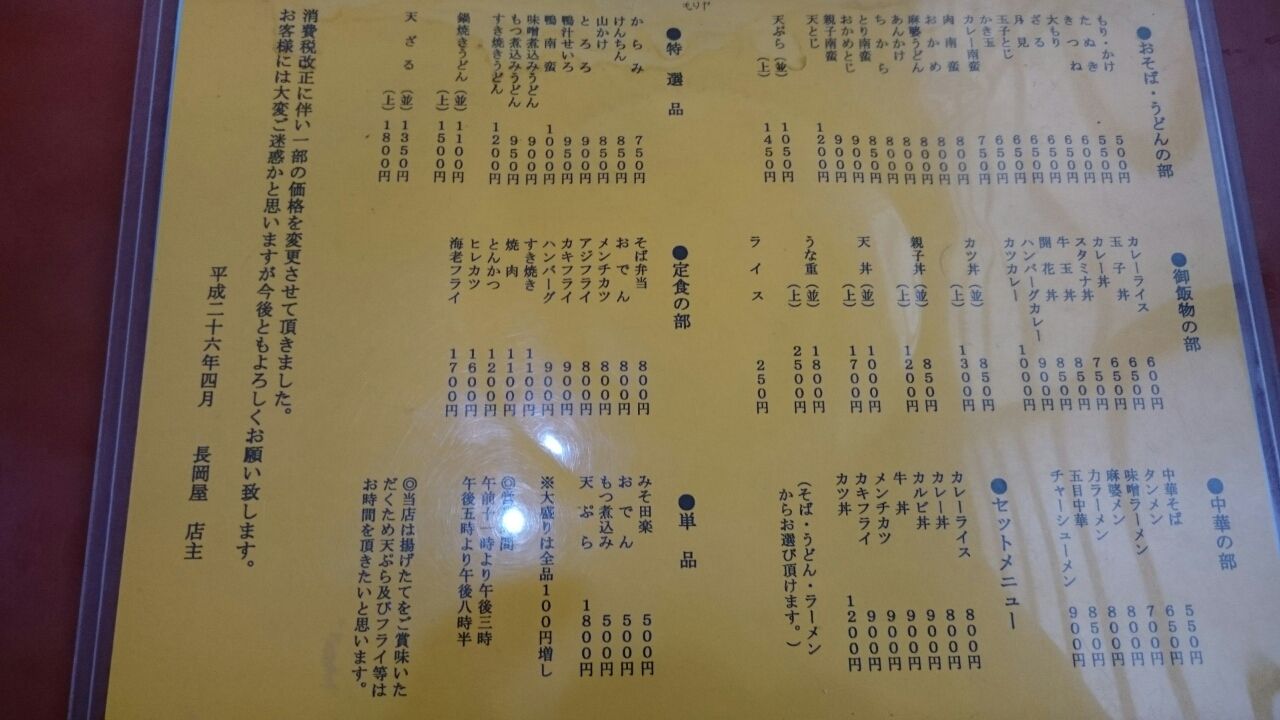 ●おそば・うどんの部
もり・かけ 500円
たぬき 550円
きつね 600円
大もり 650円
ざる 650円
月見 650円
玉子とじ 650円
かき玉 650円
カレー南蛮 750円
肉南蛮 800円
おかめ 800円
麻婆うどん 800円
あんかけ 800円
ちから 800円
とり南蛮 850円
おかめとじ 900円
親子南蛮 900円
天とじ 1200円
天ぷら (並) 1050円
(上) 1450円
●御飯物の部
カレーライス 600円
玉子丼 650円
カレー丼 650円
スタミナ丼 750円
牛玉丼 850円
開花丼 850円
ハンバーグカレー 900円
カツカレー 1000円
カツ丼 (並) 850円
(上) 1300円
親子丼 (並) 850円
(上) 1200円
天丼 (並) 1000円
(上) 1700円
うな重 (並) 1800円
(上) 2500円
ライス 250円
●中華の部
中華そば 550円
タンメン 650円
味噌ラーメン 700円
麻婆メン 800円
力ラーメン 800円
五目中華 850円
チャーシューメン 900円
●セットメニュー
カレーライス 800円
カレー丼 800円
カルビ丼 900円
牛丼 900円
メンチカツ 900円
カキフライ 900円
カツ丼 1200円
(そば・うどん・ラーメン
からお選び頂けます。)
●特選品
からみ 750円
けんちん 850円
山かけ 850円
とろろ 900円
鴨汁せいろ 950円
鴨南蛮 1000円
味噌煮込みうどん 900円
もつ煮込みうどん 950円
すき焼きうどん 1200円
鍋焼きうどん (並) 1100円
(上) 1500円
天ざる (並) 1350円
(上) 1800円
●定食の部
そば弁当 800円
おでん 800円
メンチカツ 800円
アジフライ 800円
カキフライ 900円
ハンバーグ 900円
すき焼き 1100円
焼肉 1100円
とんかつ 1200円
ヒレカツ 1600円
海老フライ 1700円
●単品
みそ田楽 500円
おでん 500円
もつ煮込み 500円
天ぷら 1800円
※大盛りは全品100円増し
◎間
午前十一時より午後三時
午後五時より午後八時半
◎当店は揚げたてをご賞味いた
だくため天ぷら及びフライ等は
お時間を頂きたいと思います。
消費税改正に伴い一部の価格を変更させて頂きました。
お客様には大変ご迷惑かと思いますが今後ともよろしくお願い致します。
平成二十六年四月 長岡屋 店主